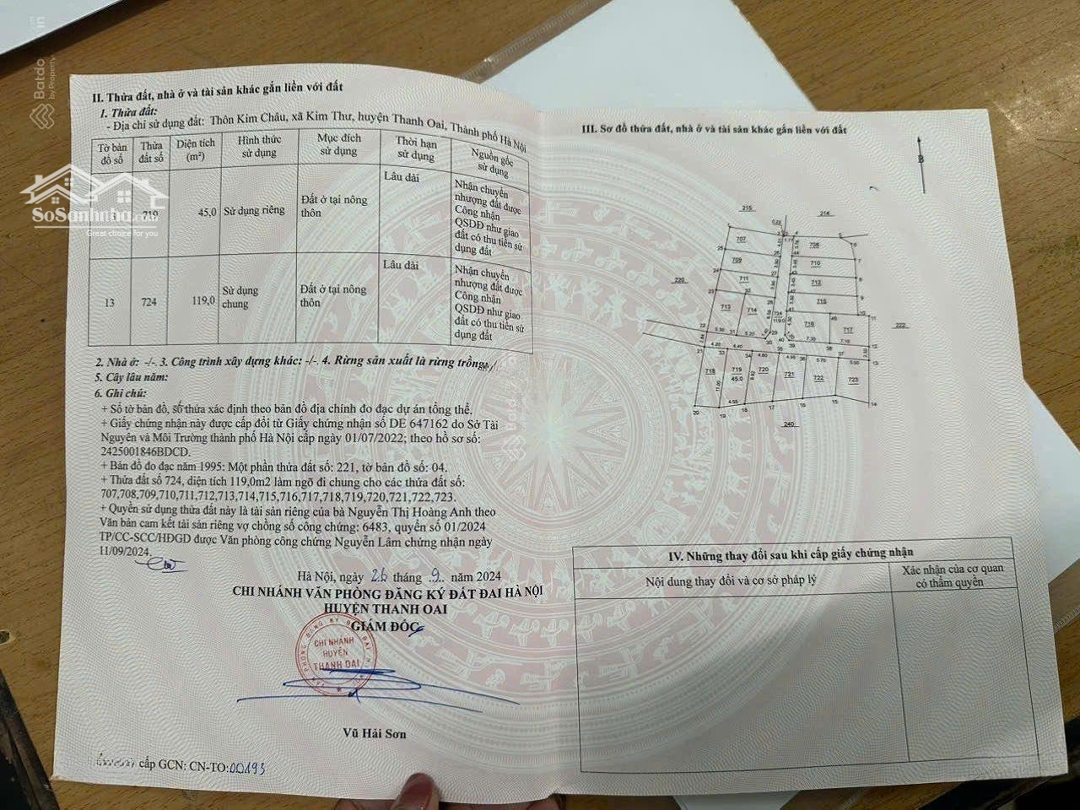 II. Thửa đất, nhà ở và tài sản khác gắn liền với đất
1. Thửa đất:
- Địa chỉ sử dụng đất: Thôn Kim Châu, xã Kim Thư, huyện Thanh Oai, Thành phố Hà Nội
Tờ bản đồ số
Thửa đất số
Diện tích (m²)
Hình thức sử dụng
Mục đích sử dụng
Thời hạn sử dụng
Nguồn gốc sử dụng
719
45,0
Sử dụng riêng
Đất ở tại nông thôn
Lâu dài
Nhận chuyển
nhượng đất được
Công nhận
QSDĐ như giao
đất có thu tiền sử
dụng đất
13
724
119,0
Sử dụng chung
Đất ở tại nông thôn
Lâu dài
Nhận chuyển
nhượng đất được
Công nhận
QSDĐ như giao
đất có thu tiền sử
dụng đất
2. Nhà ở: -/- 3. Công trình xây dựng khác: -/- 4. Rừng sản xuất là rừng trồng:
5. Cây lâu năm:
6. Ghi chú:
+ Số tờ bản đồ, số thửa xác định theo bản đồ địa chính đo đạc dự án tổng thể.
+ Giấy chứng nhận này được cấp đổi từ Giấy chứng nhận số DE 647162 do Sở Tài
Nguyên và Môi Trường thành phố Hà Nội cấp ngày 01/07/2022; theo hồ sơ số:
2425001846BDCD.
+ Bản đồ đo đạc năm 1995: Một phần thửa đất số: 221, tờ bản đồ số: 04.
+ Thửa đất số 724, diện tích 119,0m2 làm ngõ đi chung cho các thửa đất số:
707,708,709,710,711,712,713,714,715,716,717,718,719,720,721,722,723.
+ Quyền sử dụng thửa đất này là tài sản riêng của bà Nguyễn Thị Hoàng Anh theo
Văn bản cam kết tài sản riêng vợ chồng số công chứng: 6483, quyển số 01/2024
TP/CC-SCC/HĐGD được Văn phòng công chứng Nguyễn Lâm chứng nhận ngày
11/09/2024.
Hà Nội, ngày 26 tháng 9 năm 2024
CHI NHÁNH VĂN PHÒNG ĐĂNG KÝ ĐẤT ĐAI HÀ NỘI
HUYỆN THANH OAI
GIÁM ĐỐC
CHI NHÁNH
HUYỆN
THANH OAI
Vũ Hải Sơn
cấp GCN: CN-TO:00193
III. Sơ đồ thửa đất, nhà ở và tài sản khác gắn liền với đất
B
215
214
707
708
709
710
711
712
713
714
715
716
717
220
222
718
719
45.0
720
721
722
723
240
IV. Những thay đổi sau khi cấp giấy chứng nhận
Nội dung thay đổi và cơ sở pháp lý
Xác nhận của cơ quan
có thẩm quyền
SoSanhnha.com
Great choice for you
Batdo
by Property